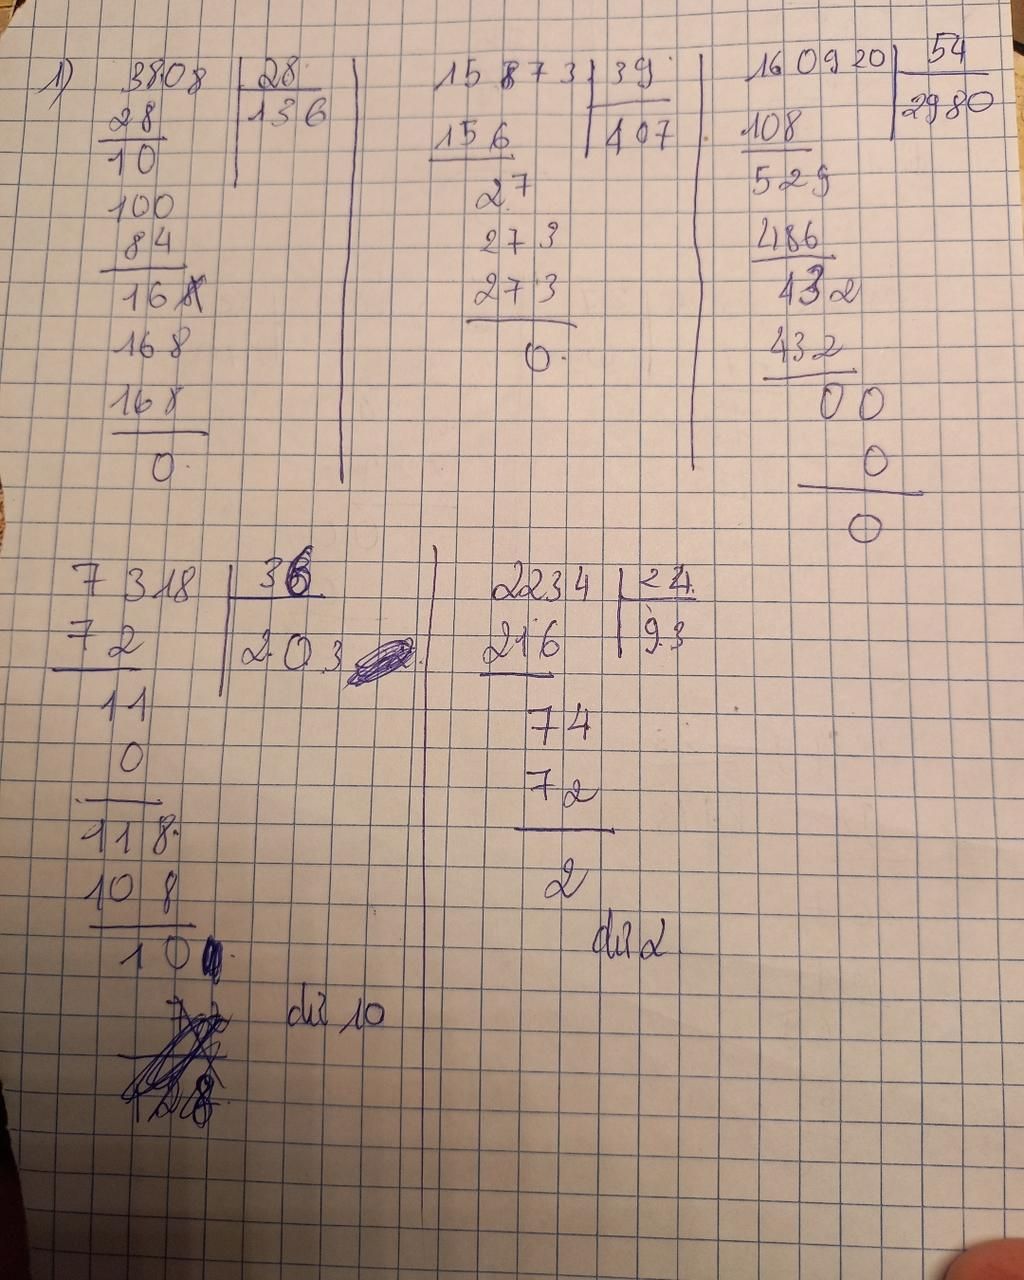 1) 3808 28
28 136
10
100
84
168
168
168
0
15873 39
156 407
27
273
273
0
160920 54
108 2980
529
486
432
432
00
0
0
7318 36
72 203
11
0
118
108
10
dư 10
2234 24
216 93
74
72
2
dư 2